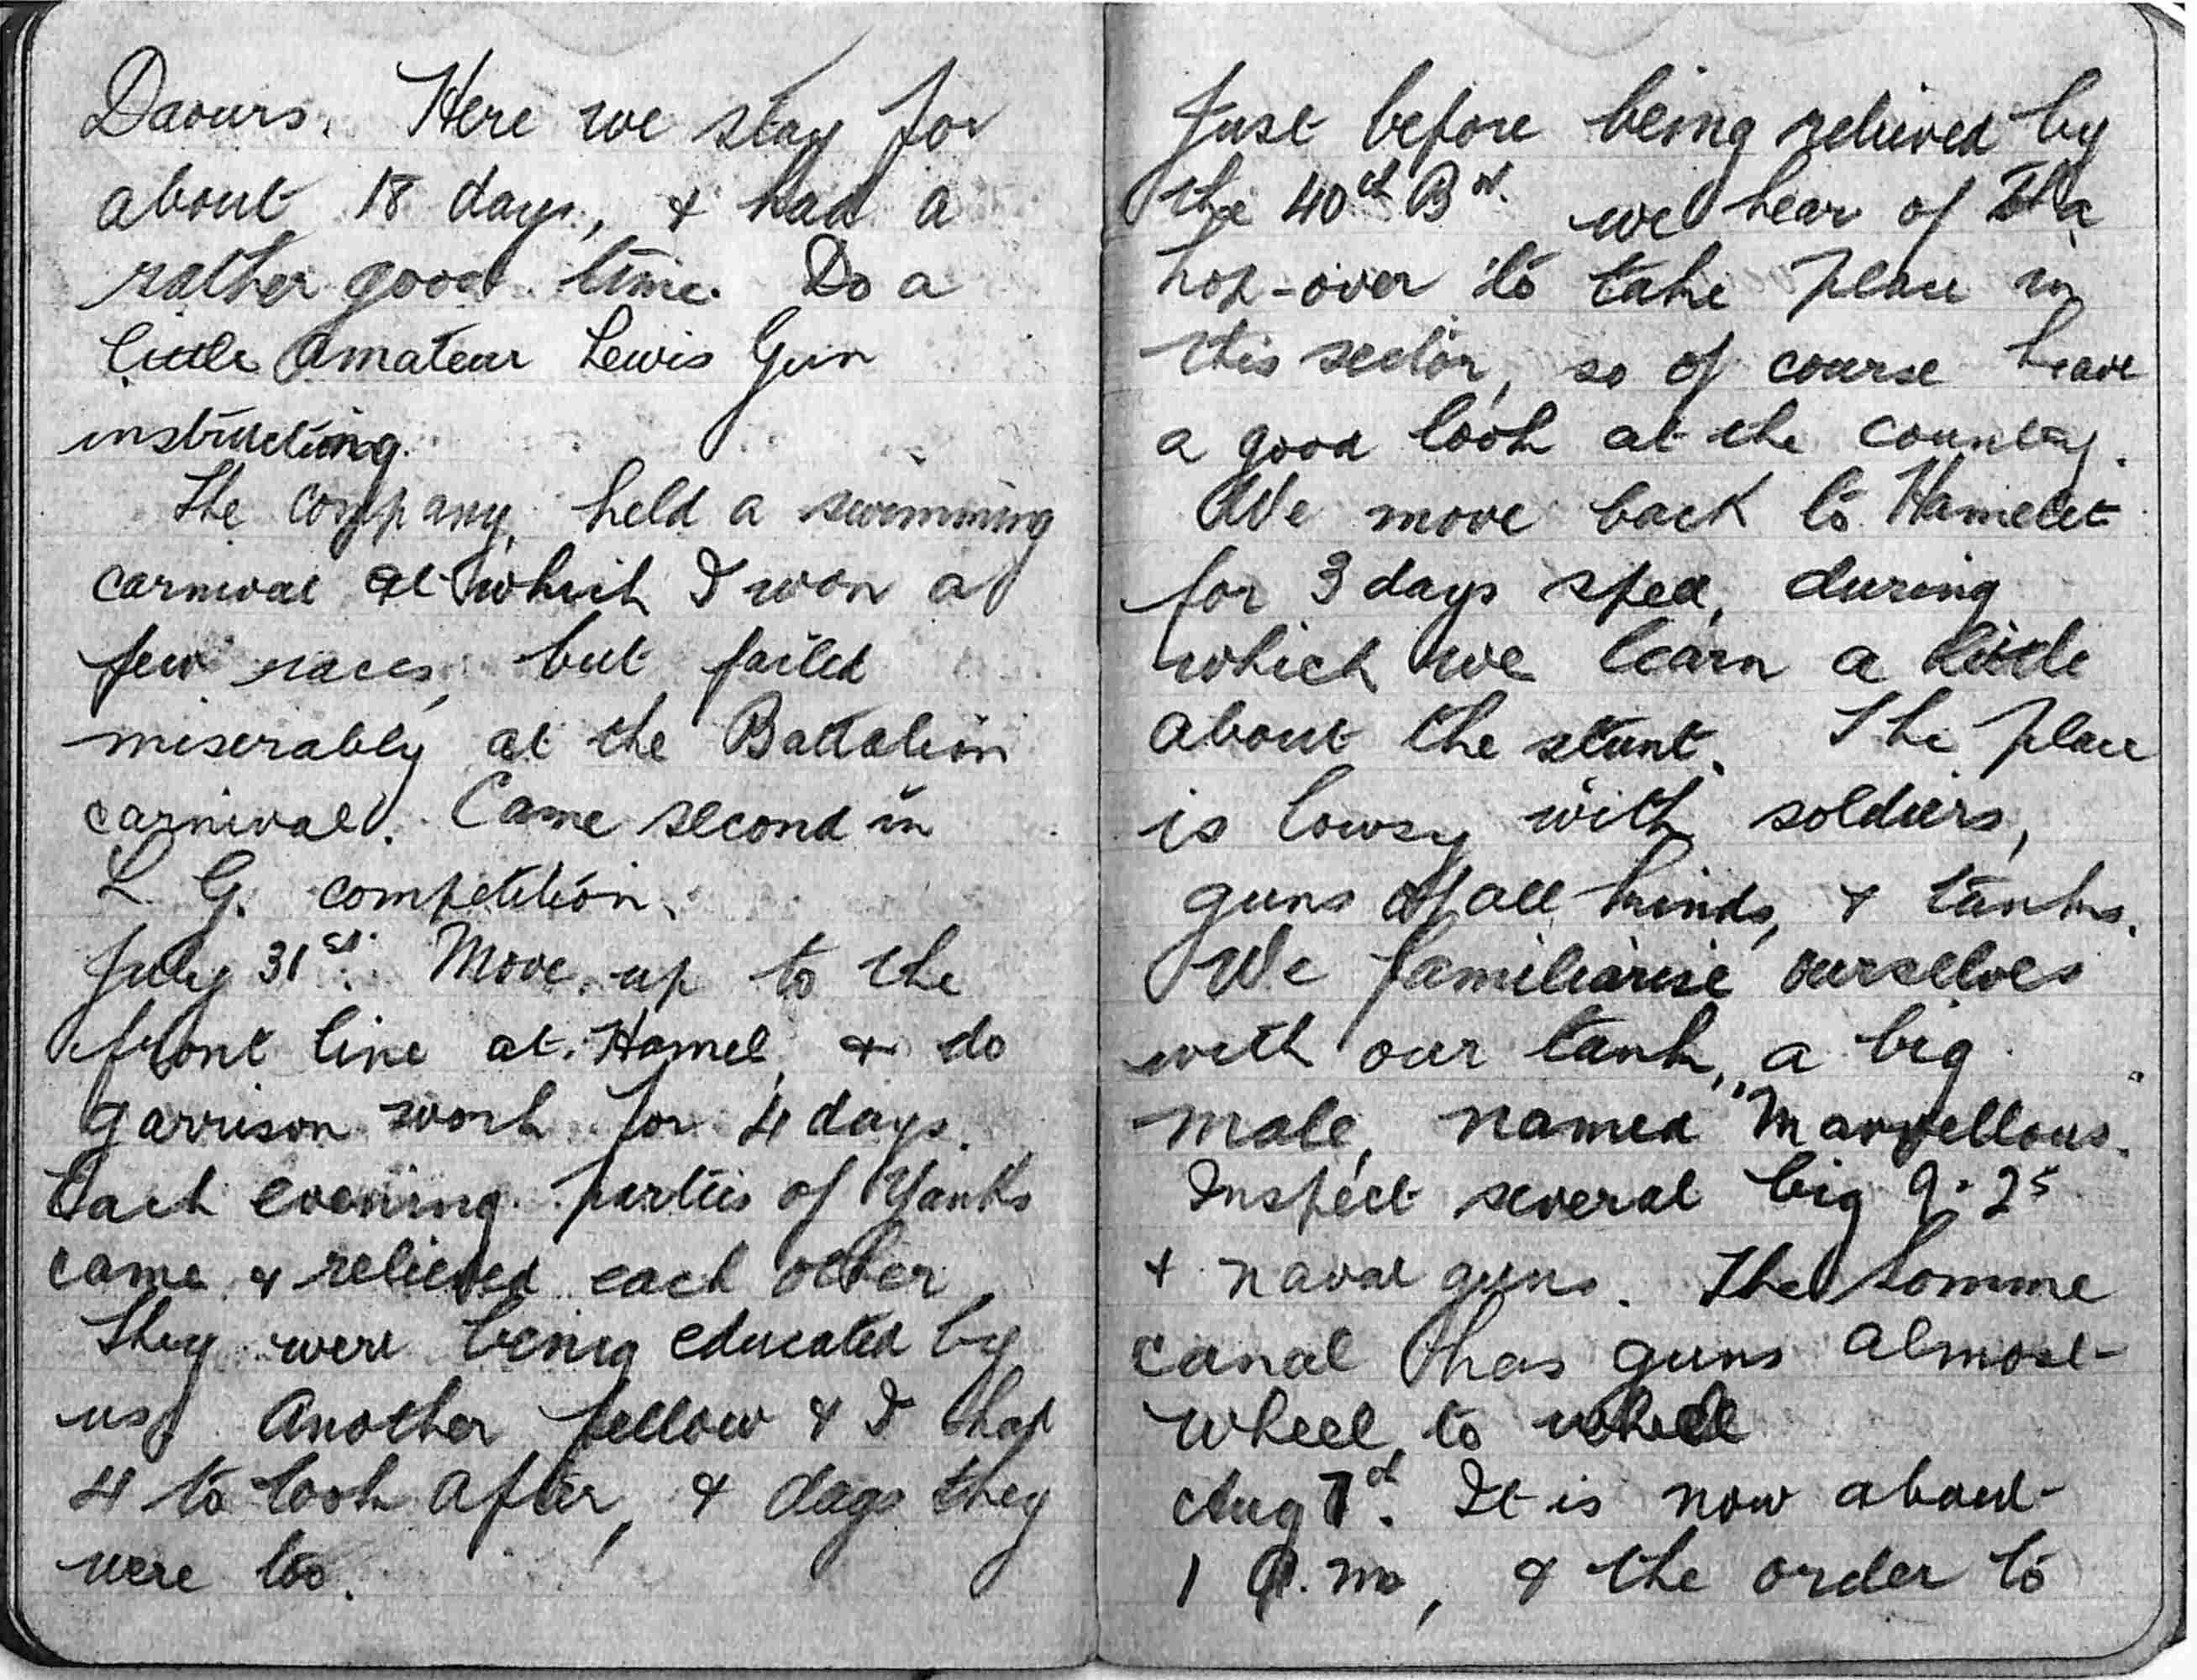 Daours. Here we stay for
about 18 days, & had a
rather good time. Do a
little amateur Lewis Gun
instructing.
The company held a swimming
carnival at which I won a
few races, but failed
miserably at the Battalion
carnival. Came second in
L G. competition.
July 31st. Move up to the
front line at Hamel, & do
garrison work for 4 days.
Each evening parties of Yanks
came & relieved each other.
They were being educated by
us. Another fellow & I had
4 to look after, & dags they
were too.
Just before being relieved by
the 40th Bn. we hear of a
hop-over to take place in
this sector, so of course have
a good look at the country.
We move back to Hamelet
for 3 days sped, during
which we learn a little
about the stunt. The place
is lowsy with soldiers,
guns of all kinds, & tanks.
We familiarise ourselves
with our tank, a big
male, named "Marvellous.
Inspect several big 9.2s
& naval guns. The Somme
canal has guns almost
wheel to wheel
Aug 7th. It is now about
1 a.m, & the order to